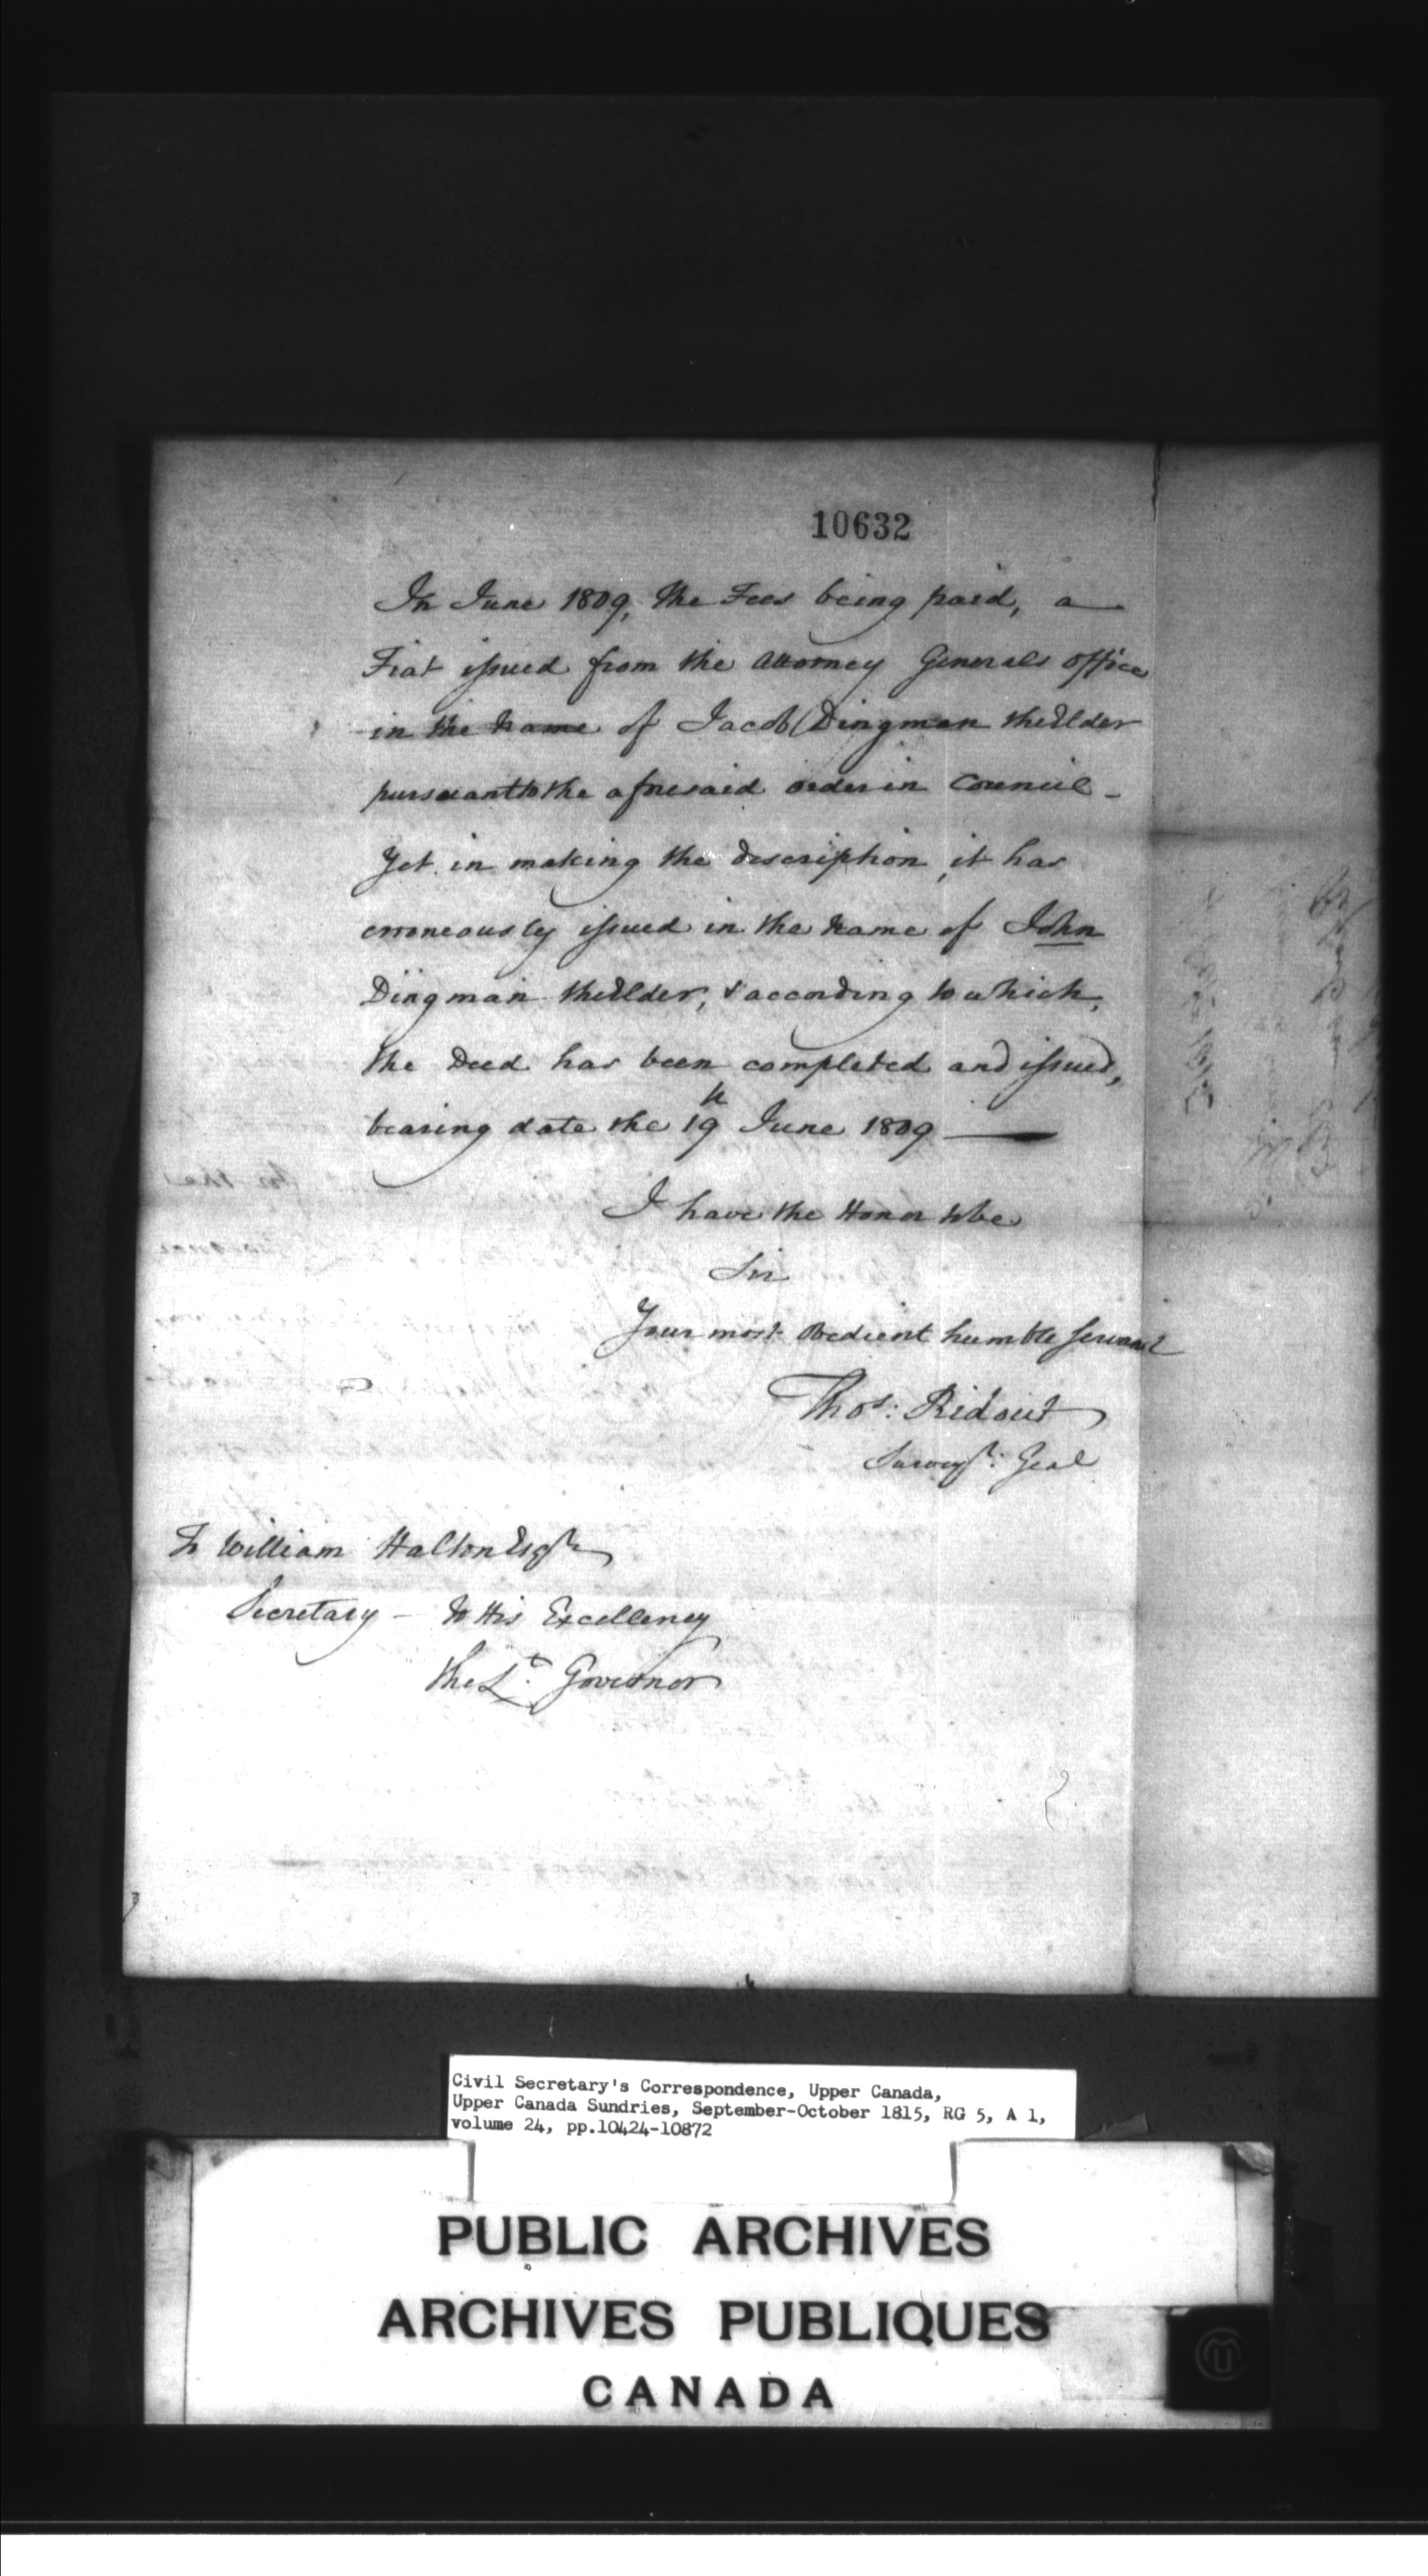 10632
In June 1809, the Fees being paid, a
Fiat issued from the Attorney Generals office
in the Name of Jacob Dingman the Elder
pursuant to the aforesaid order in Council -
Yet in making the description, it has
erroneously issued in the Name of John
Dingman the Elder, & according to which,
the Deed has been completed and issued,
bearing date the 19th June 1809 —
I have the Honor to be
Sir
Your most Obedient humble Servant
Thos: Ridout
Surveyr: Genl
To William Halton Esqr
Secretary - to His Excellency
the Lt. Governor
Civil Secretary's Correspondence, Upper Canada,
Upper Canada Sundries, September-October 1815, RG 5, A 1,
volume 24, pp.10424-10872
PUBLIC ARCHIVES
ARCHIVES PUBLIQUES
CANADA